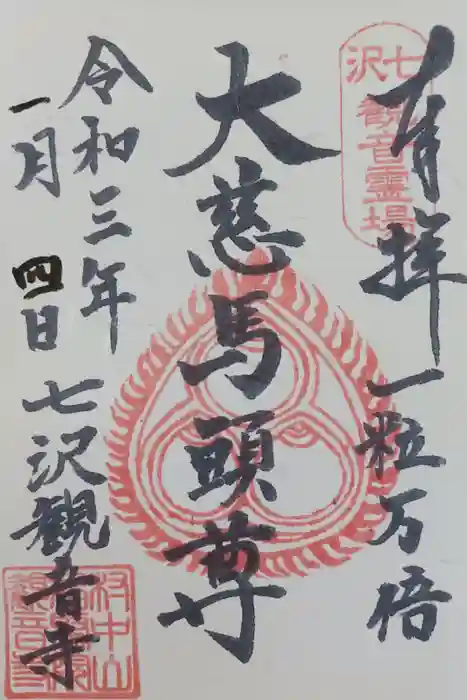 奉拝
一粒万倍
七沢
観音霊場
大慈馬頭尊
令和三年
一月四日
七沢観音寺